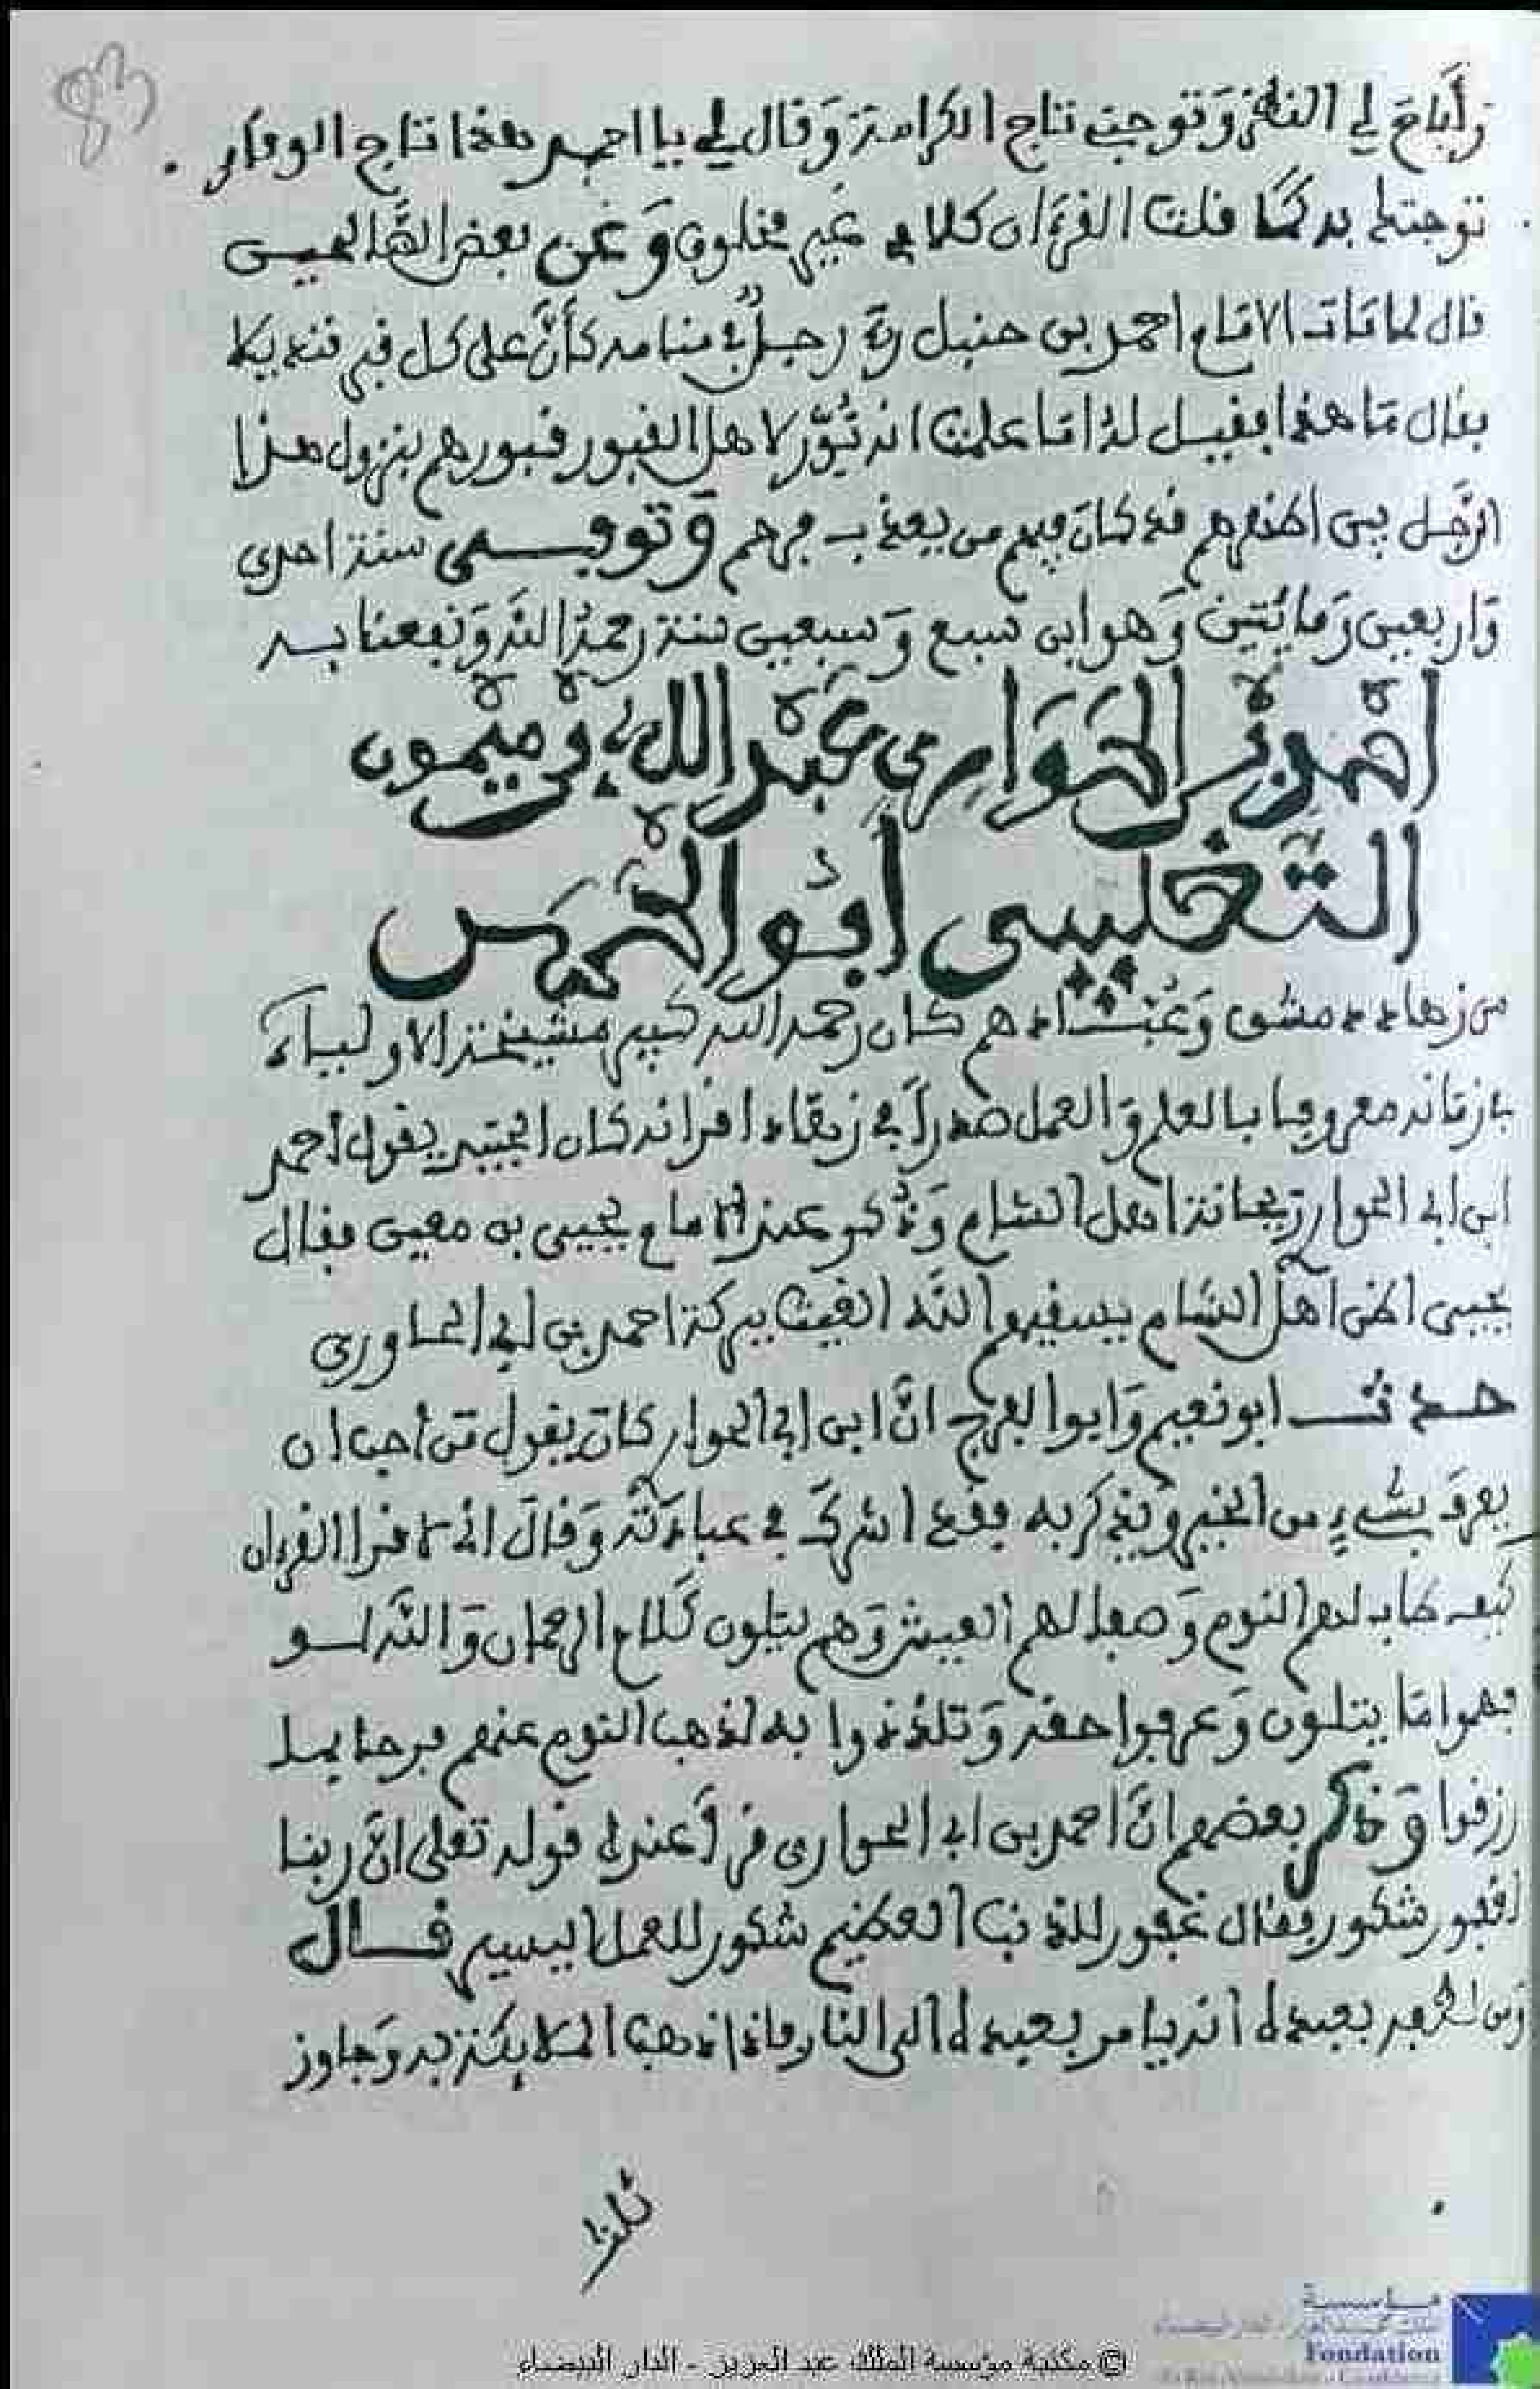 وأباح لي النظر وتوجني تاج الكرامة وقال لي يا احمد هذا تاج الوقار
توجتك به كما قلت القرءان كلام غير مخلوق وعن بعض الصالحيــن
قال لما مات الامام احمد بن حنبل رءا رجل في منامه كأن على كل قبر قنديلا
فقال ما هذا فقيل له اما علمت انه نور لاهل القبور قبورهم بنزول هذا
الرجل بين اظهرهم قد كان فيهم من يعذب فرحم وتوفــي سنة احدى
واربعين ومائتين وهو ابن سبع وسبعين سنة رحمه الله ونفعنا به
احمد بن الحواري عبد الله بن ميمون
التغلبيي أبو الحسن
من زهاد دمشق وعبــادهم كان رحمه الله كبير مشيخة الاوليــاء
بازمانه معروفا بالعلم والعمل صدرا في زهاد اقرانه كان الجنيد يقول أحمد
ابن ابي الحوار ريحانة اهل الشام وذكر عند الامام يحيى بن معين فقال
يحيى اظن اهل الشام يسقيهم الله الغيث ببركة احمد بن ابي الحـاوري
حــدثــ ابو نعيم وابوا الفرج ان ابن ابي الحوار كان يقول من أحب ان
يعرف بشيء من الخير ويذكر به فقد اشرك في عبادته وقال اذا قرا القرءان
كيف طاب لهم النوم وصفا لهم العيش وهم يتلون كلام الرحمان والله لــو
فهموا ما يتلون وعرفوا حقه وتلذذوا به لذهب النوم عنهم فرحا بما
رزقوا وذكر بعضهم ان احمد بن ابي الحواري قرأ عنده قوله تعلى ان ربنا
لغفور شكور فقال غفور للذنب العظيم شكور للعمل اليسير قــال
بعبده انه يامر بعبده الى النار فاذا ذهبت الملايكة به وجاوز
© مكتبة مؤسسة الملك عبد العزيز - الدار البيضاء
مؤسسة
Fondation